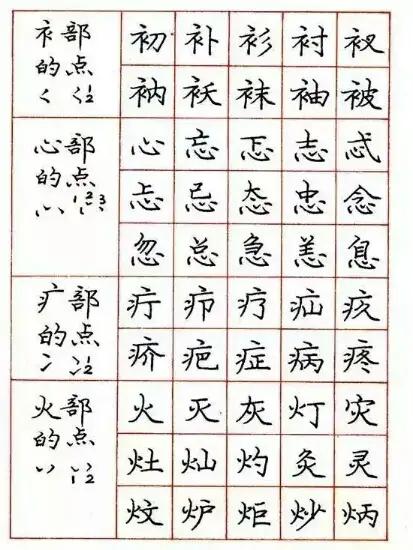 衤部的点
初 补 衫 衬 衩
衲 袄 袜 袖 被
心部的点
1 2 3
心 忘 忑 志 忒
忐 忌 态 忠 念
忽 总 急 恙 息
疒部的点
1 2
疔 疖 疗 疝
疥 疤 症 病 疼
火部的点
1 2
火 灭 灰 灯 灾
灶 灿 灼 灸 灵
炆 炉 炬 炒 炳